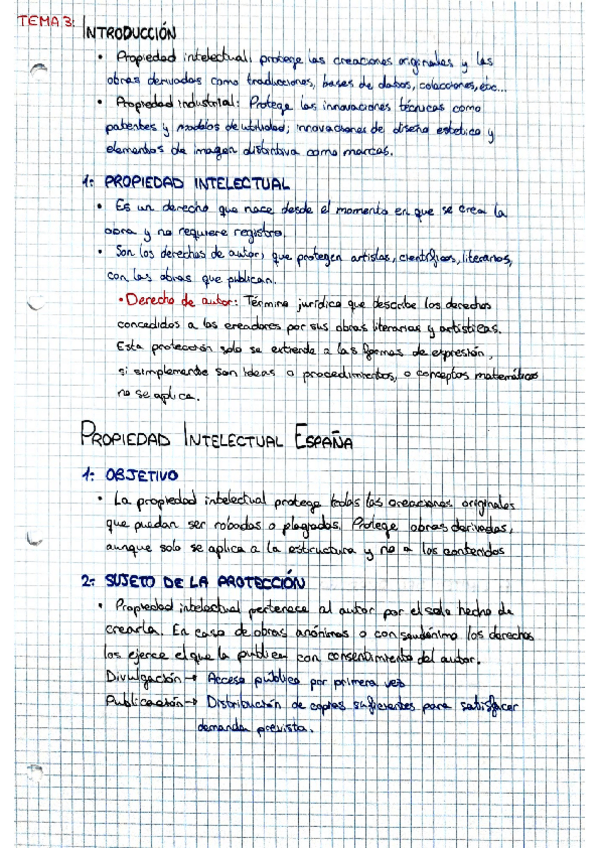 TEMA 3: INTRODUCCIÓN
• Propiedad intelectual: protege las creaciones originales y las
obras derivadas como traducciones, bases de datos, colecciones, etc...
• Propiedad industrial: Protege las innovaciones técnicas como
patentes y modelos de utilidad; innovaciones de diseño estético y
elementos de imagen distintiva como marcas.
1: PROPIEDAD INTELECTUAL
• Es un derecho que nace desde el momento en que se crea la
obra y no requiere registro.
• Son los derechos de autor, que protegen artistas, científicos, literarios,
con las obras que publican.
• Derecho de autor: Término jurídico que describe los derechos
concedidos a los creadores por sus obras literarias y artísticas.
Esta protección solo se extiende a las formas de expresión,
si simplemente son ideas o procedimientos, o conceptos matemáticos
no se aplica.
PROPIEDAD INTELECTUAL ESPAÑA
1: OBJETIVO
• La propiedad intelectual protege todas las creaciones originales
que puedan ser robadas o plagiadas. Protege obras derivadas,
aunque solo se aplica a la estructura y no a los contenidos
2: SUJETO DE LA PROTECCIÓN
• Propiedad intelectual pertenece al autor por el solo hecho de
crearla. En caso de obras anónimas o con seudónimo los derechos
los ejerce el que la publica con consentimiento del autor.
Divulgación → Acceso público por primera vez
Publicación → Distribución de copias suficientes para satisfacer
demanda prevista.